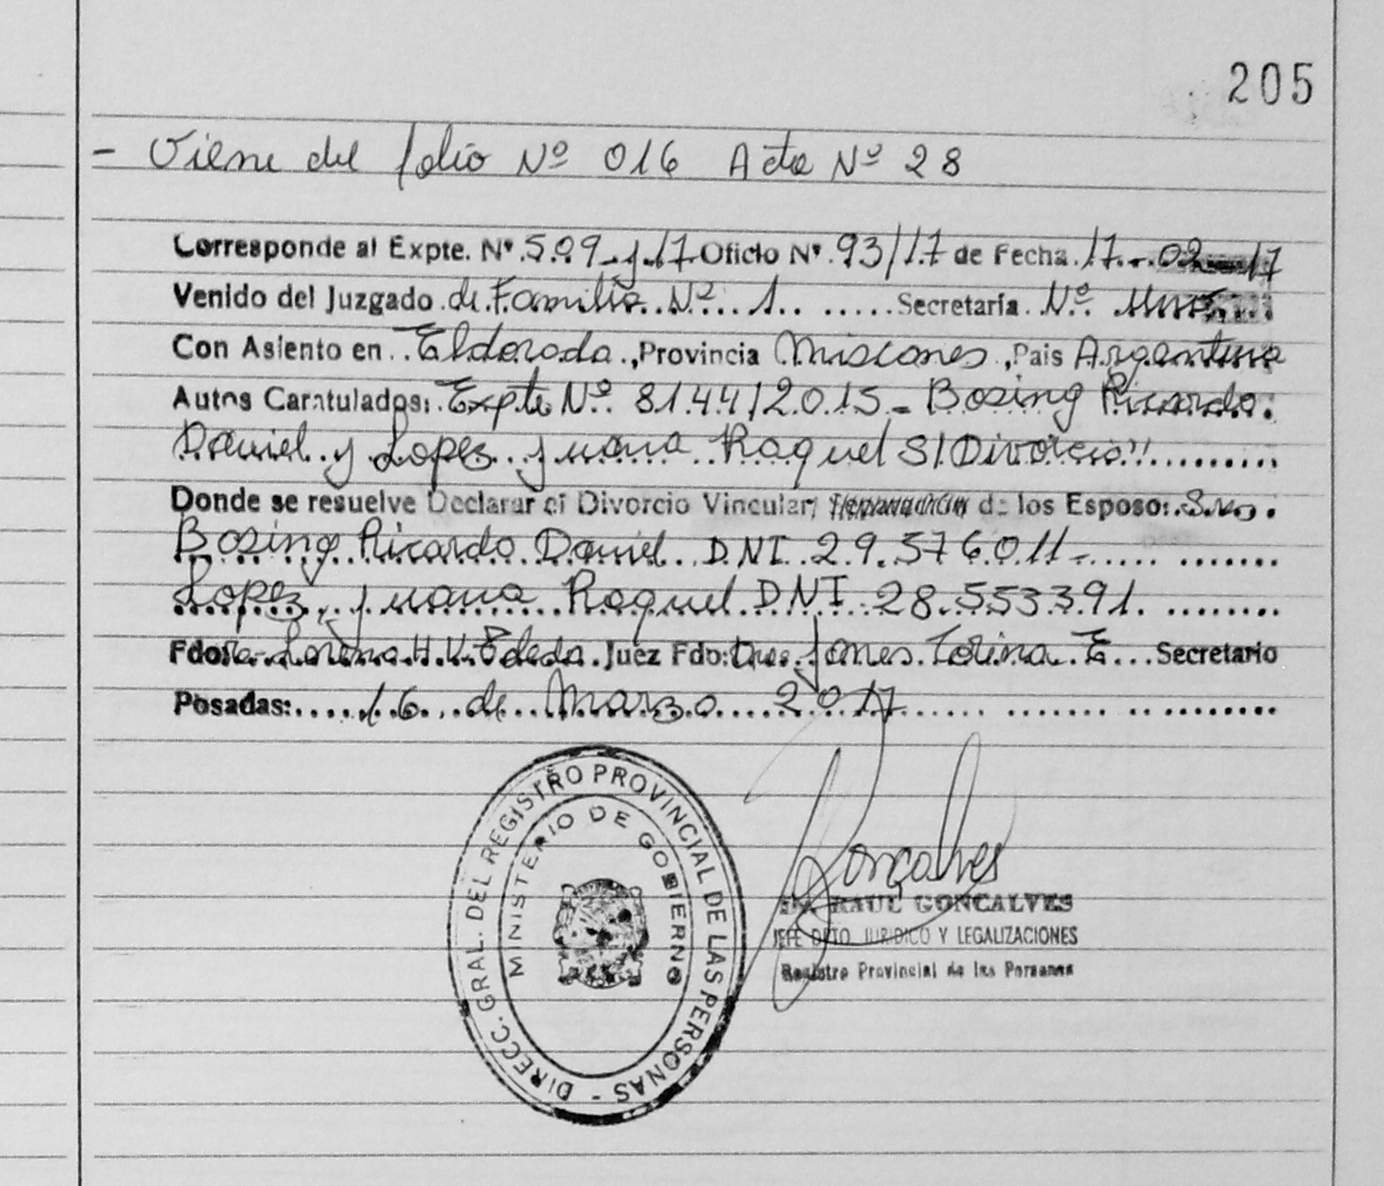 205
- Viene del folio Nº 016 Acta Nº 28
Corresponde al Expte. Nº 509-j-17 Oficio Nº 93/17 de Fecha 17-02-17
Venido del Juzgado de Familia Nº 1 Secretaría Nº
Con Asiento en Eldorado, Provincia Misiones, Pais Argentina
Autos Caratulados: Expte Nº 8144/2015 - Bosing Ricardo
Daniel y Lopez Juana Raquel S/Divorcio"
Donde se resuelve Declarar el Divorcio Vincular; de los Esposo:
Bosing Ricardo Daniel DNI 29.576.011-
Lopez, Juana Raquel DNI 28.553.391.
Fdo: Dra. Lorena H. V. Toledo. Juez Fdo: James E... Secretario
Posadas: 16 de Marzo 2017
DIRECC. GRAL. DEL REGISTRO PROVINCIAL DE LAS PERSONAS -
MINISTERIO DE GOBIERNO
Gonçalves
Dr. RAUL GONCALVES
JEFE DPTO. JURIDICO Y LEGALIZACIONES
Registro Provincial de las Personas